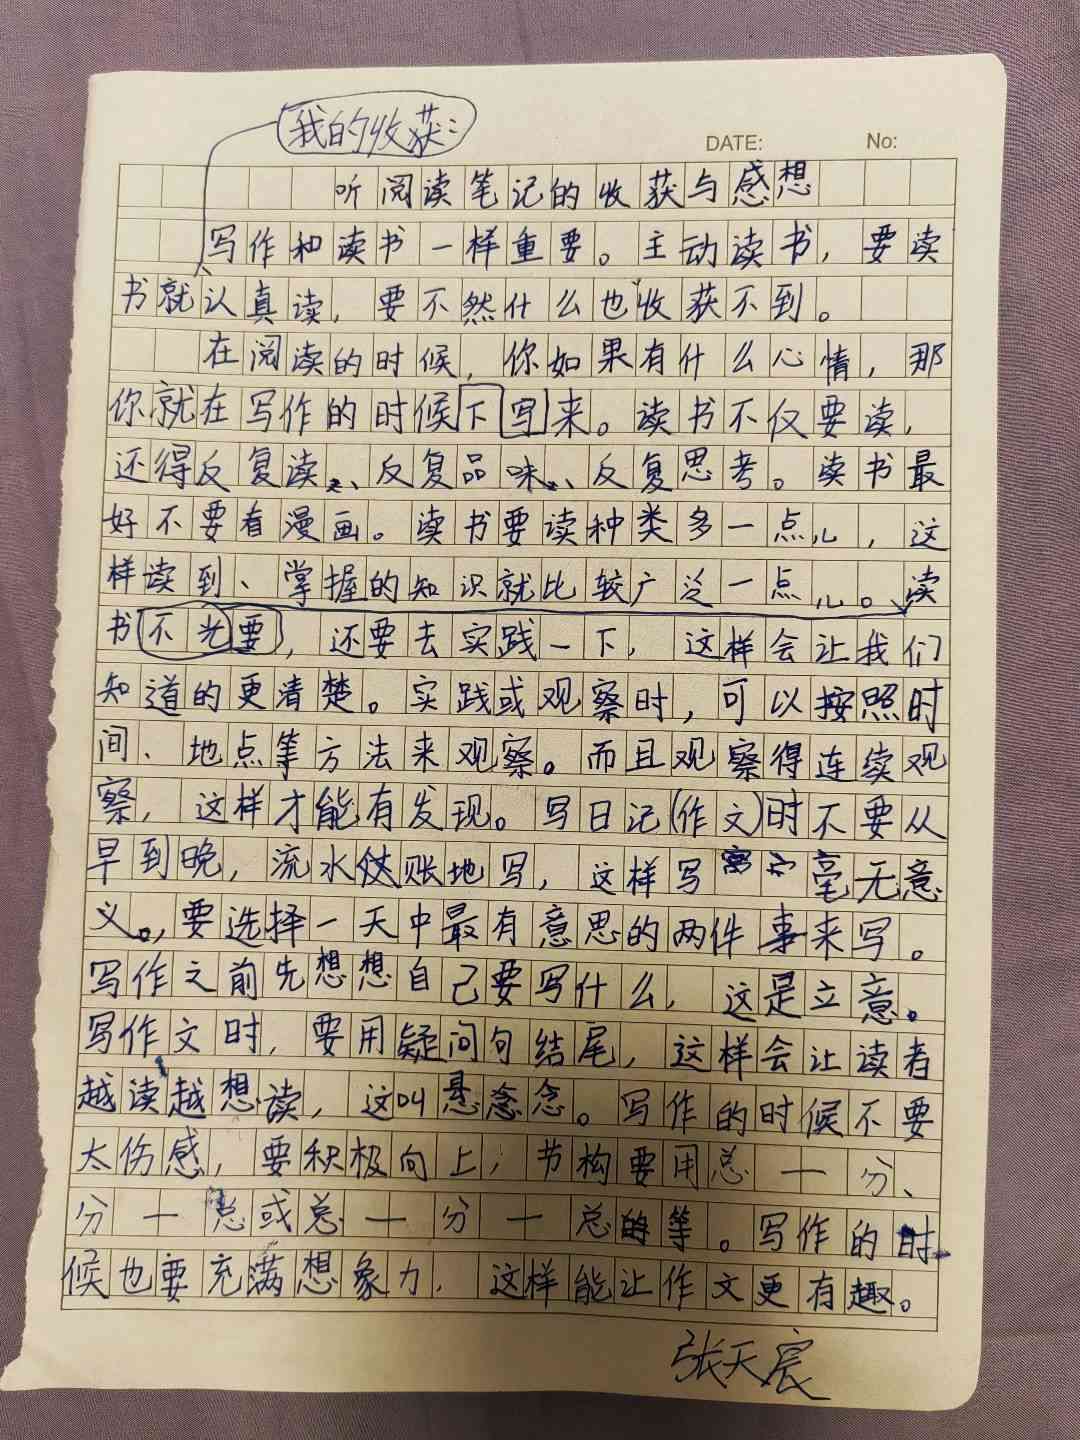 我的收获：
DATE: No:
听阅读笔记的收获与感想
写作和读书一样重要。主动读书，要读
书就认真读，要不然什么也收获不到。
在阅读的时候，你如果有什么心情，那
你就在写作的时候下写来。读书不仅要读，
还得反复读、反复品味、反复思考。读书最
好不要看漫画。读书要读种类多一点儿，这
样读到、掌握的知识就比较广泛一点儿。读
书不光要，还要去实践一下，这样会让我们
知道的更清楚。实践或观察时，可以按照时
间、地点等方法来观察。而且观察得连续观
察，这样才能有发现。写日记(作文)时不要从
早到晚，流水账地写，这样写毫无意
义。，要选择一天中最有意思的两件事来写。
写作之前先想想自己要写什么，这是立意。
写作文时，要用疑问句结尾，这样会让读者
越读越想读，这叫悬念。写作的时候不要
太伤感，要积极向上，节构要用总一分、
分一总或总一分一总等。写作的时
候也要充满想象力，这样能让作文更有趣。
张天宸